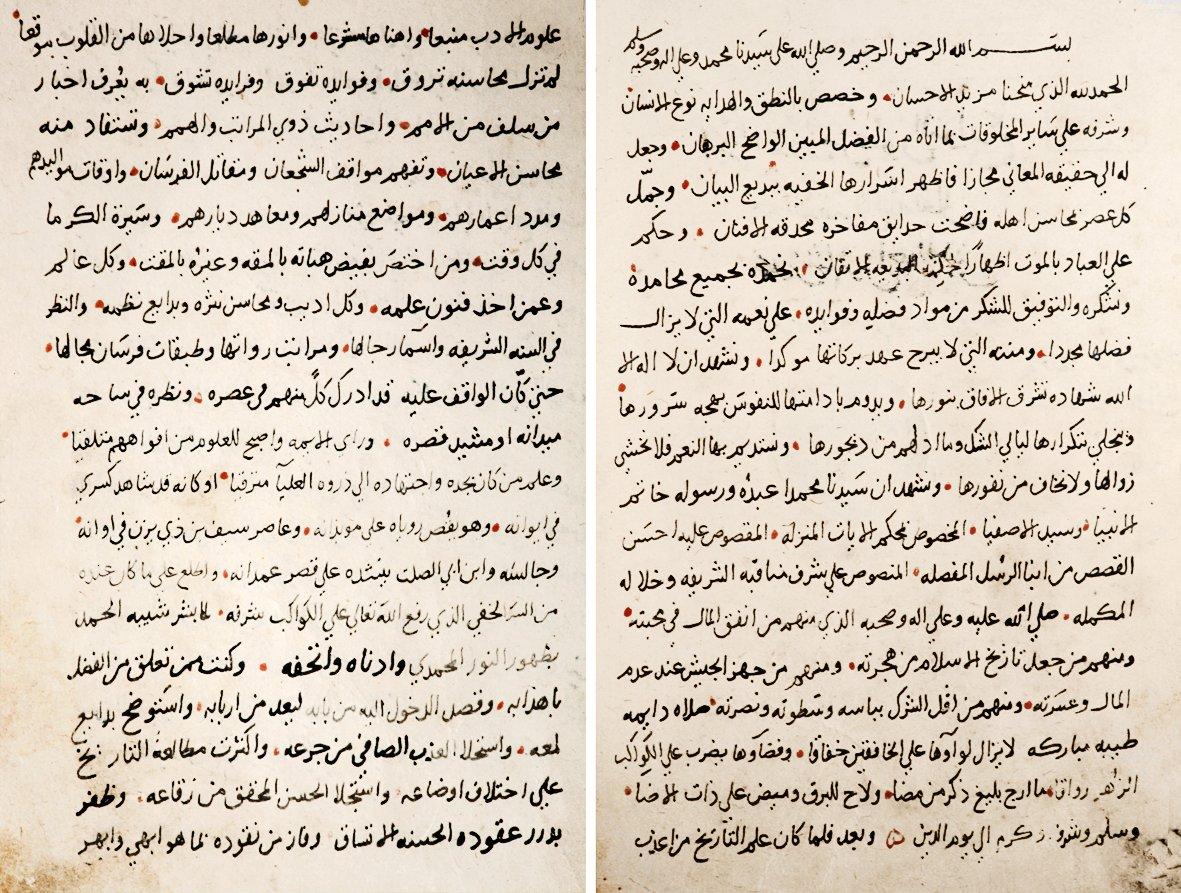 بسم الله الرحمن الرحيم وصلي الله علي سيدنا محمد وعلي اله وصحبه وسلم
الحمد لله الذي منحنا مزيد الاحسان • وخصص بالنطق والهدايه نوع الانسان
وشرفه علي ساير المخلوقات بما اتاه من الفضل المبين الواضح البرهان • وجعل
له الي حقيقه المعاني مجازا فاظهر اسرارها الخفيه ببديع البيان • وجمل
كل عصر بمحاسن اهله فاضحت حدايق مفاخره محدقه الافنان • وحكم
علي العباد بالموت اظهاراً الاتقان • نحمده بجميع محامده
ونشكره والتوفيق للشكر من مواد فضله وفوايده • علي نعمه التي لا يزال
فضلها مجددا • ومننه التي لا يبرح عهد بركاتها موكدا • ونشهد ان لا اله الا
الله شهاده تشرق الافاق بنورها • ويدوم بادامتها للنفوس بهجه سرورها •
وينجلي بتكرارها ليالي الشك وما ادلهم من ديجورها • ونستديم بها النعم فلا نخشي
زوالها ولا نخاف من نفورها • ونشهد ان سيدنا محمدا عبده ورسوله خاتم
الانبيا • وسيد الاصفيا • المخصوص بمحكم الايات المنزله • المقصوص عليه احسن
القصص من انبا الرسل المفصله • المنصوص علي شرف مناقبه الشريفه وخلاله
المكمله • صلي الله عليه وعلي اله وصحبه الذي منهم من انفق المال في محبته •
ومنهم من جعل تاريخ الاسلام من هجرته • ومنهم من جهز الجيش عند عدم
المال وعسرته • ومنهم من اقل الشرك بباسه وسطوته ونصرته • صلاه دايمه
طيبه مباركه لا يزال لواوها علي الخافقين خفاقا • وفضاوها يضرب علي الكواكب
الزهر رواقا • ما ارج بليغ ذكر من مضا • ولاح للبرق وميض علي ذات الاضا •
وسلم وشرف وكرم الي يوم الدين ه وبعد فلما كان علم التاريخ من اعذب
علوم الادب منبعا • واهناها مشرعا • وانورها مطلعا واحلاها من القلوب موقعا
لم تزل محاسنه تروق • وفوايده تفوق وفرايده تشوق • به يعرف اخبار
من سلف من الامم • واحاديث ذوي المراتب والهمم • وتستفاد منه
محاسن الاعيان • وتفهم مواقف الشجعان ومقاتل الفرسان • واوقات مواليدهم
ومدد اعمارهم • ومواضع منازلهم ومعاهد ديارهم • وسيرة الكرما
في كل وقت • ومن اختص بفيض هباته بالمقه وغيره بالمقت • وكل عالم
وعمن اخذ فنون علمه • وكل اديب ومحاسن نثره وبدايع نظمه • والنظر
في السنه الشريفه واسمآ رجالها • ومراتب رواتها وطبقات فرسان مجالها •
حتي كأن الواقف عليه قد ادرك كلً منهم في عصره • ونظره في ساحه
ميدانه او مشيد قصره • وراي الاسمه واضح للعلوم من افواههم متلقنا •
وعلم من كان بجده واجتهاده الي ذروه العليآ مترقيا • او كانه قد شاهد كسري
في ايوانه • وهو يقص روياه علي موبذانه • وعاصر سيف بن ذي يزن في اوانه
وجالسه وابن ابي الصلت ينشده علي قصر غمدانه • واطلع علي ما كان عنده
من السر الخفي الذي رفع الله تعالي علي الكواكب شرفه • لما بشر شيبه الحمد
بظهور النور المحمدي وادناه واتحفه • وكنت ممن تعلق من الفضل
باهدابه • وقصد الدخول اليه من بابه لبعد من اربابه • واستوضح بدايع
لمعه • واستحلا العذب الصافي من جرعه • واكثرت مطالعة التاريخ
علي اختلاف اوضاعه واستجلا الحسن المحقق من رقاعه • وظفر
بدرر عقوده الحسنه الاتساق وفاز من نقوده بما هو ابهي وابهر